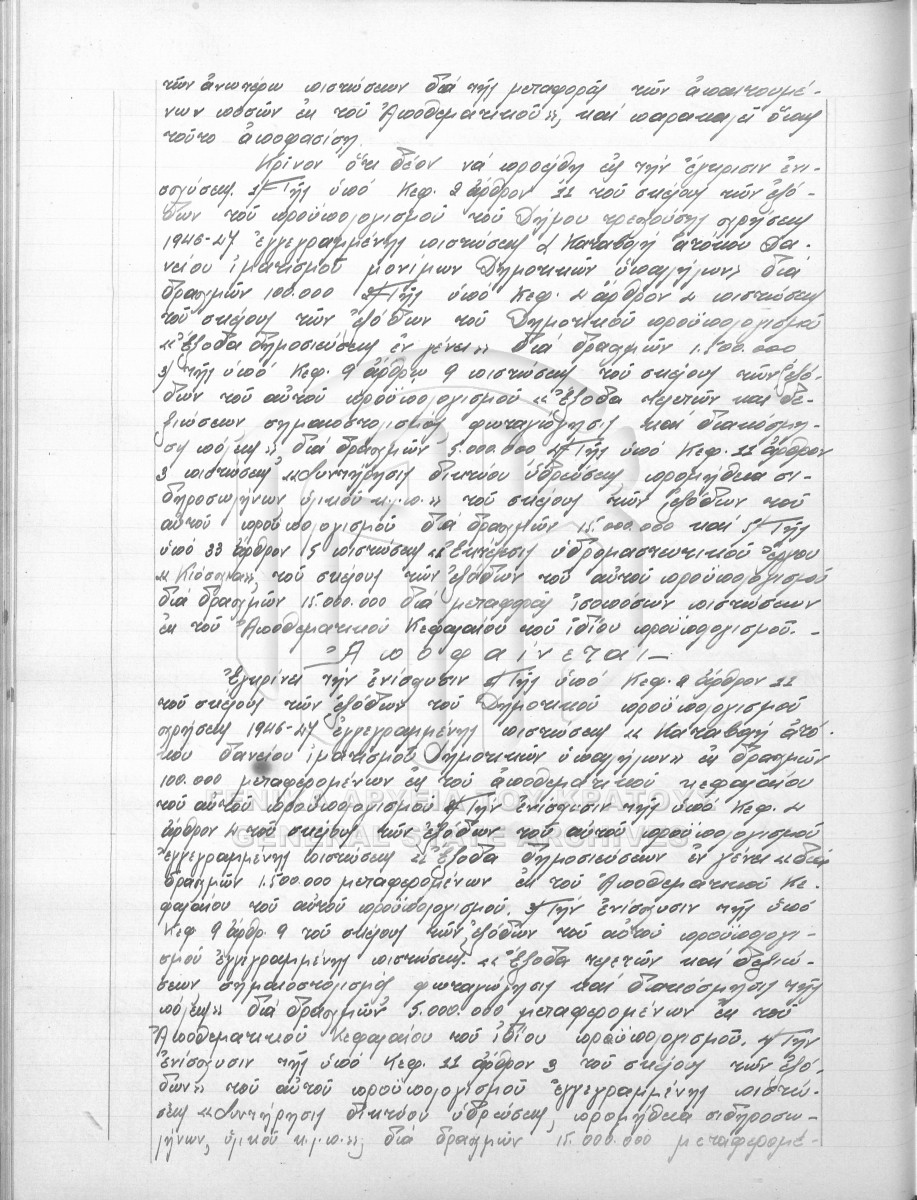 τῶν ἀνωτέρω πιστώσεων διά τῆς μεταφορᾶς τῶν ἀπαιτουμέ-
νων ποσῶν ἐκ τοῦ Ἀποθεματικοῦ», καί παρακαλεῖ ὅπως
τοῦτο ἀποφασίση.
Κρῖνον ὅτι δέον νά προέλθη εἰς τήν ἔγκρισιν ἐνι-
σχύσεως 1) Τῆς ὑπό Κεφ. 9 ἄρθρον 11 τοῦ σκέλους τῶν ἐξό-
δων τοῦ προϋπολογισμοῦ τοῦ Δήμου τρεχούσης χρήσεως
1946-47 ἐγγεγραμμένης πιστώσεως « Καταβολή ἀτόκου Δα-
νείου ἱματισμοῦ μονίμων Δημοτικῶν ὑπαλλήλων» διά
δραχμῶν 100.000 2) Τῆς ὑπό Κεφ. 4 ἄρθρον 4 πιστώσεως
τοῦ σκέλους τῶν ἐξόδων τοῦ Δημοτικοῦ προϋπολογισμοῦ
«Ἔξοδα δημοσιεύσεως ἐν γένει» διά δραχμῶν 1.500.000
3) τῆς ὑπό Κεφ. 9 ἄρθρον 9 πιστώσεως τοῦ σκέλους τῶν ἐξό-
δων τοῦ αὐτοῦ προϋπολογισμοῦ «Ἔξοδα τελετῶν καί δε-
ξιώσεων σημαιοστολισμός φωταγώγησις καί διακόσμη-
σις πόλεως» διά δραχμῶν 5.000.000 4) Τῆς ὑπό Κεφ. 11 ἄρθρον
3 πιστώσεως «Συντήρησις δικτύου ὑδρεύσεως, προμήθεια σι-
δηροσωλήνων ὑλικοῦ κ.λ.π.» τοῦ σκέλους τῶν ἐξόδων τοῦ
αὐτοῦ προϋπολογισμοῦ διά δραχμῶν 15.000.000 καί 5) Τῆς
ὑπό 33 ἄρθρον 5 πιστώσεως «Ἐκτέλεσις ὑδρομαστευτικοῦ ἔργου
« τοῦ σκέλους τῶν ἐξόδων τοῦ αὐτοῦ προϋπολογισμοῦ
διά δραχμῶν 15.000.000 διά μεταφορᾶς ἰσοπόσων πιστώσεων
ἐκ τοῦ Ἀποθεματικοῦ Κεφαλαίου τοῦ ἰδίου προϋπολογισμοῦ. -
-Ἀποφαίνεται-
Ἐγκρίνει τήν ἐνίσχυσιν 1) Τῆς ὑπό Κεφ. 9 ἄρθρον 11
τοῦ σκέλους τῶν ἐξόδων τοῦ Δημοτικοῦ προϋπολογισμοῦ
χρήσεως 1946-47 ἐγγεγραμμένης πιστώσεως « Καταβολή ἀτό-
κου δανείου ἱματισμοῦ Δημοτικῶν ὑπαλλήλων» ἐκ δραχμῶν
100.000 μεταφερομένων ἐκ τοῦ ἀποθεματικοῦ κεφαλαίου
τοῦ αὐτοῦ προϋπολογισμοῦ 2) Τήν ἐνίσχυσιν τῆς ὑπό Κεφ. 4
ἄρθρον 4 τοῦ σκέλους τῶν ἐξόδων τοῦ αὐτοῦ προϋπολογισμοῦ
ἐγγεγραμμένης πιστώσεως «Ἔξοδα δημοσιεύσεων ἐν γένει « διά
δραχμῶν 1.500.000 μεταφερομένων ἐκ τοῦ Ἀποθεματικοῦ Κε-
φαλαίου τοῦ αὐτοῦ προϋπολογισμοῦ. 3) Τήν ἐνίσχυσιν τῆς ὑπό
Κεφ 9 ἄρθρ. 9 τοῦ σκέλους τῶν ἐξόδων τοῦ αὐτοῦ προϋπολογι-
σμοῦ ἐγγεγραμμένης πιστώσεως «Ἔξοδα τελετῶν καί δεξιώ-
σεων σημαιοστολισμός φωταγώγησις καί διακόσμησις τῆς
πόλεως» διά δραχμῶν 5.000.000 μεταφερομένων ἐκ τοῦ
Ἀποθεματικοῦ Κεφαλαίου τοῦ ἰδίου προϋπολογισμοῦ. 4) Τήν
ἐνίσχυσιν τῆς ὑπό Κεφ. 11 ἄρθρον 3 τοῦ σκέλους τῶν ἐξό-
δων» τοῦ αὐτοῦ προϋπολογισμοῦ ἐγγεγραμμένης πιστώ-
σεως «Συντήρησις δικτύου ὑδρεύσεως, προμήθεια σιδηροσω-
λήνων, ὑλικοῦ κ.λ.π.», διά δραχμῶν 15.000.000 μεταφερομέ-
ΓΕΝΙΚΑ ΑΡΧΕΙΑ ΤΟΥ ΚΡΑΤΟΥΣ
GENERAL STATE ARCHIVES